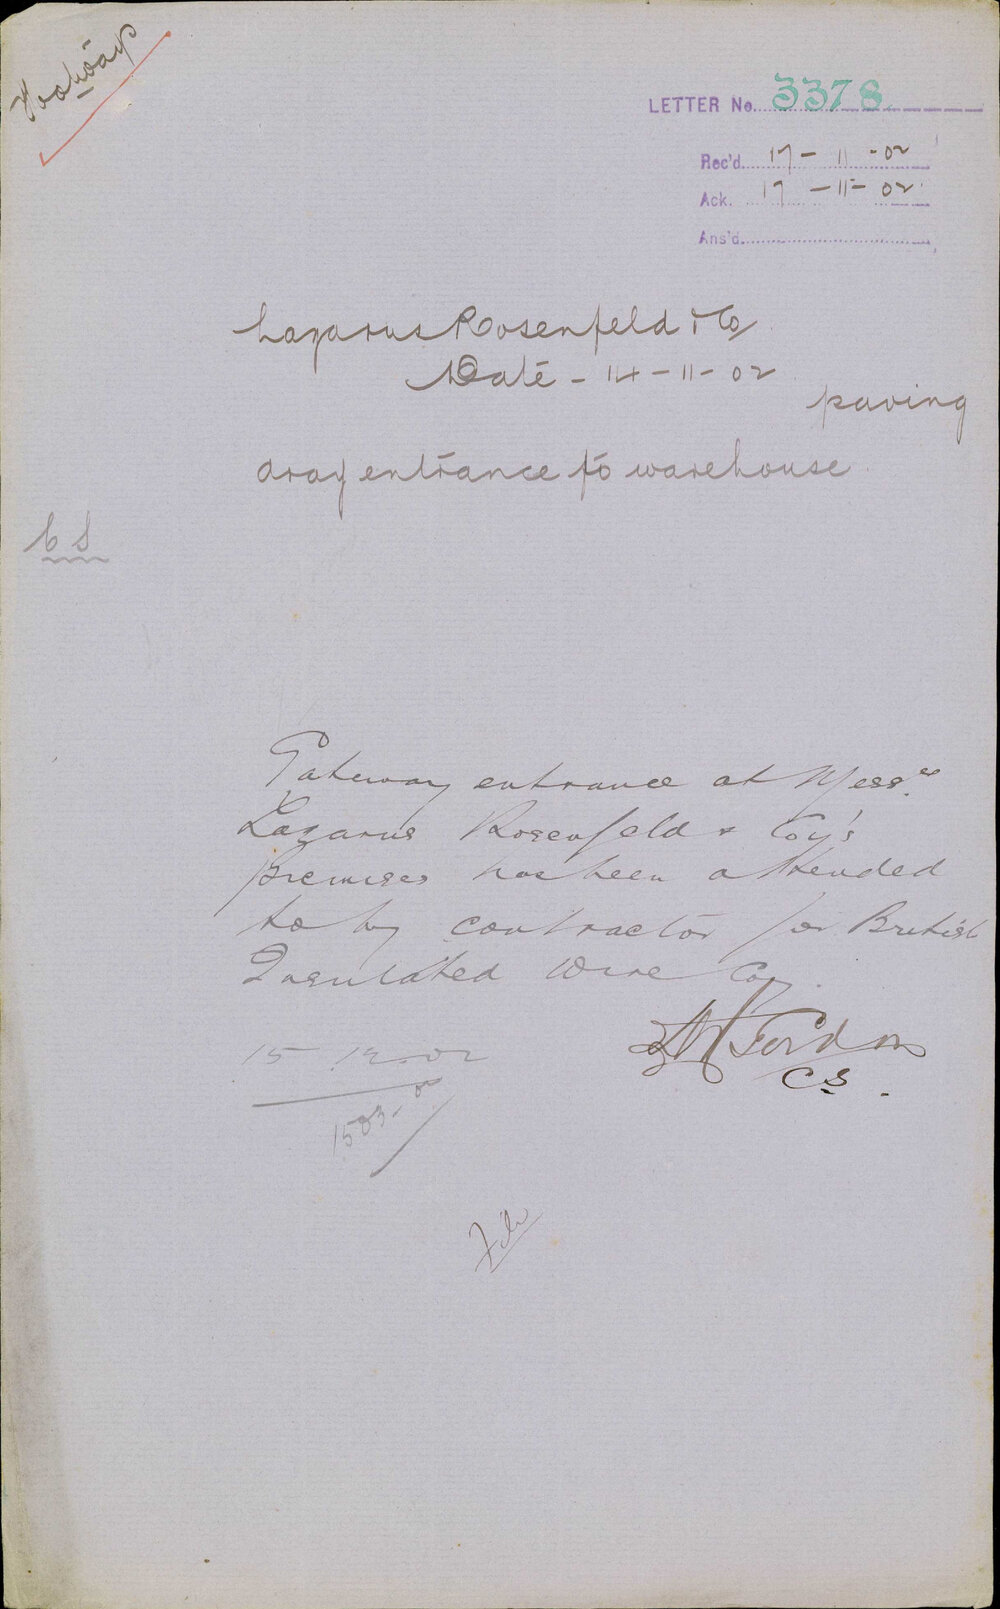 Footway
LETTER No. 3378
Rec'd. 17 - 11 - 02
Ack. 17 - 11 - 02
Ans'd.
Lazarus Rosenfeld & Co
Date - 14 - 11 - 02
paving
dray entrance to warehouse
C S
Gateway entrance at Messrs.
Lazarus Rosenfeld & Coy's
premises has been attended
to by contractor for British
Insulated Wire Co
Gordon
CS.
15 - 12 - 02
File